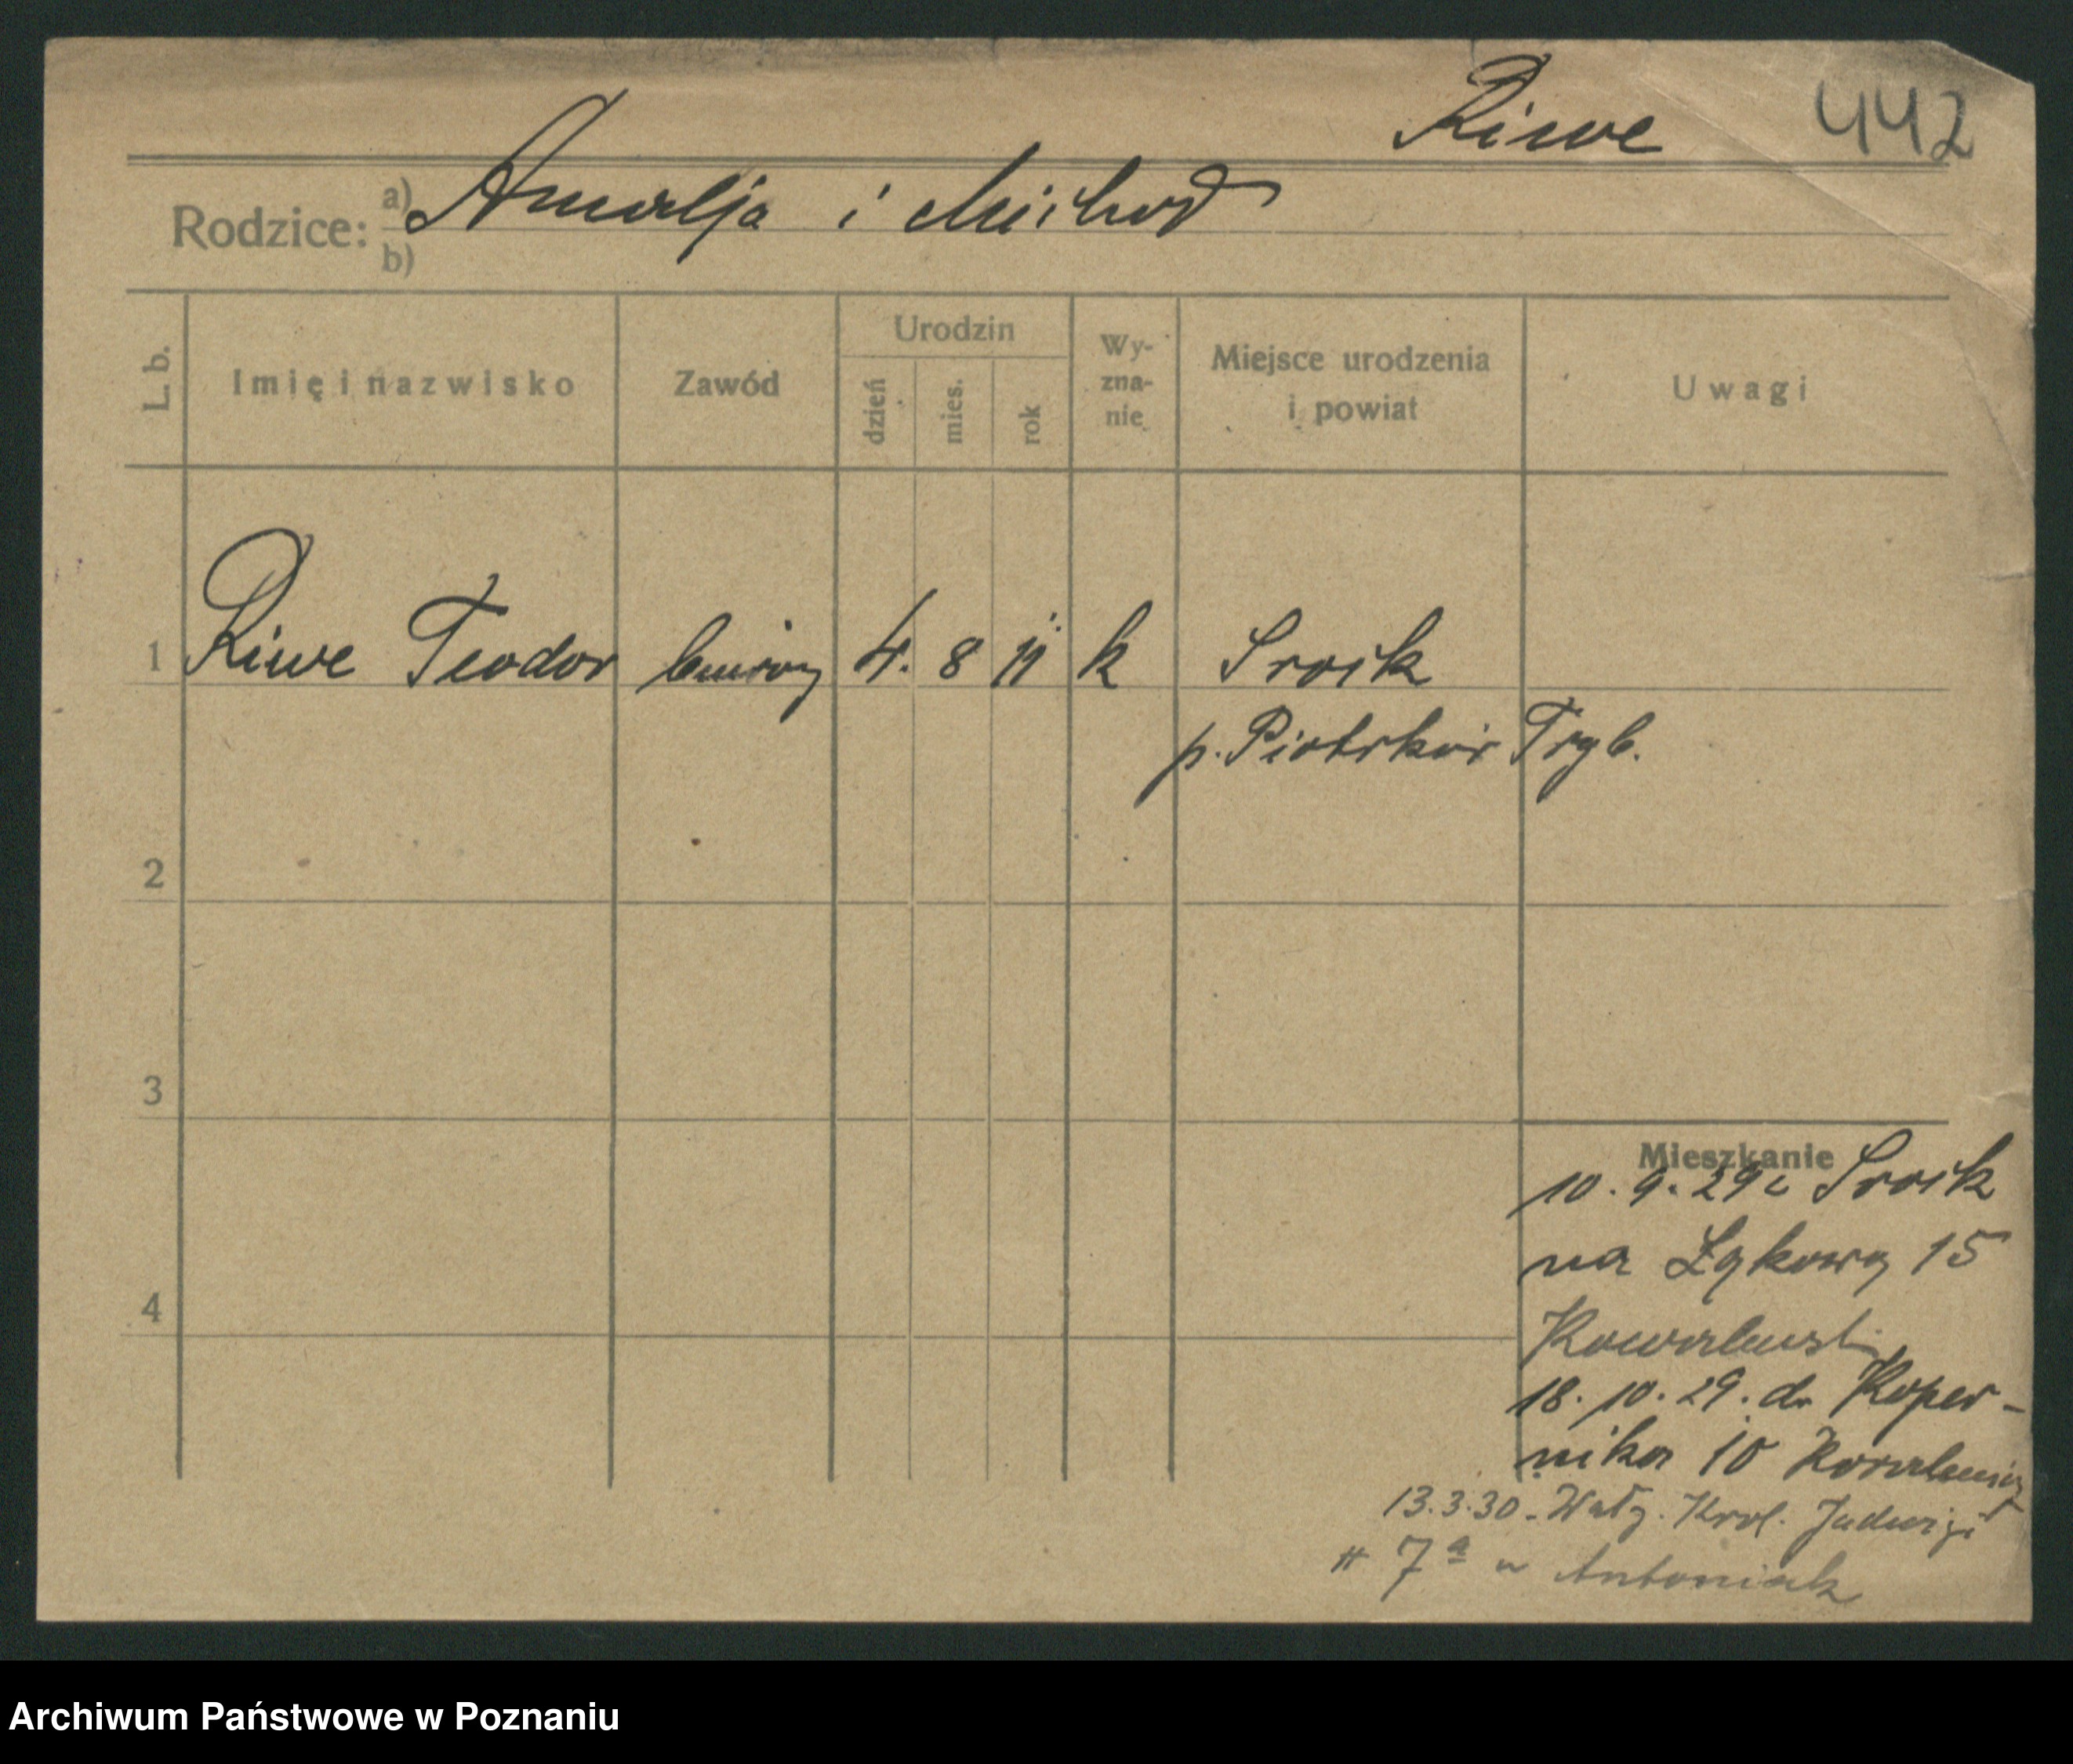 Riwe 442
Rodzice: a) Amalja i Michał
b)
L. b. Imię i nazwisko Zawód Urodzin dzień mies. rok Wy-zna-nie Miejsce urodzenia i powiat Uwagi
1 Riwe Teodor 4. 8 11 k Srock
p. Piotrków Tryb.
2
3
Mieszkanie
10. 9. 29 z Srock
na Łąkową 15
4
Kowalewski
18. 10. 29. do Koper-
nika 10
13.3.30. Wały. Król. Jadwigi
# 7a u Antoniak
Archiwum Państwowe w Poznaniu